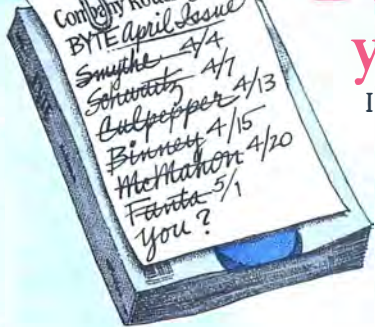 BYTE April Issue
Smythe 4/4
Schwartz 4/7
Culpepper 4/13
Binney 4/15
McMahon 4/20
Fanta 5/1
you?
y
I